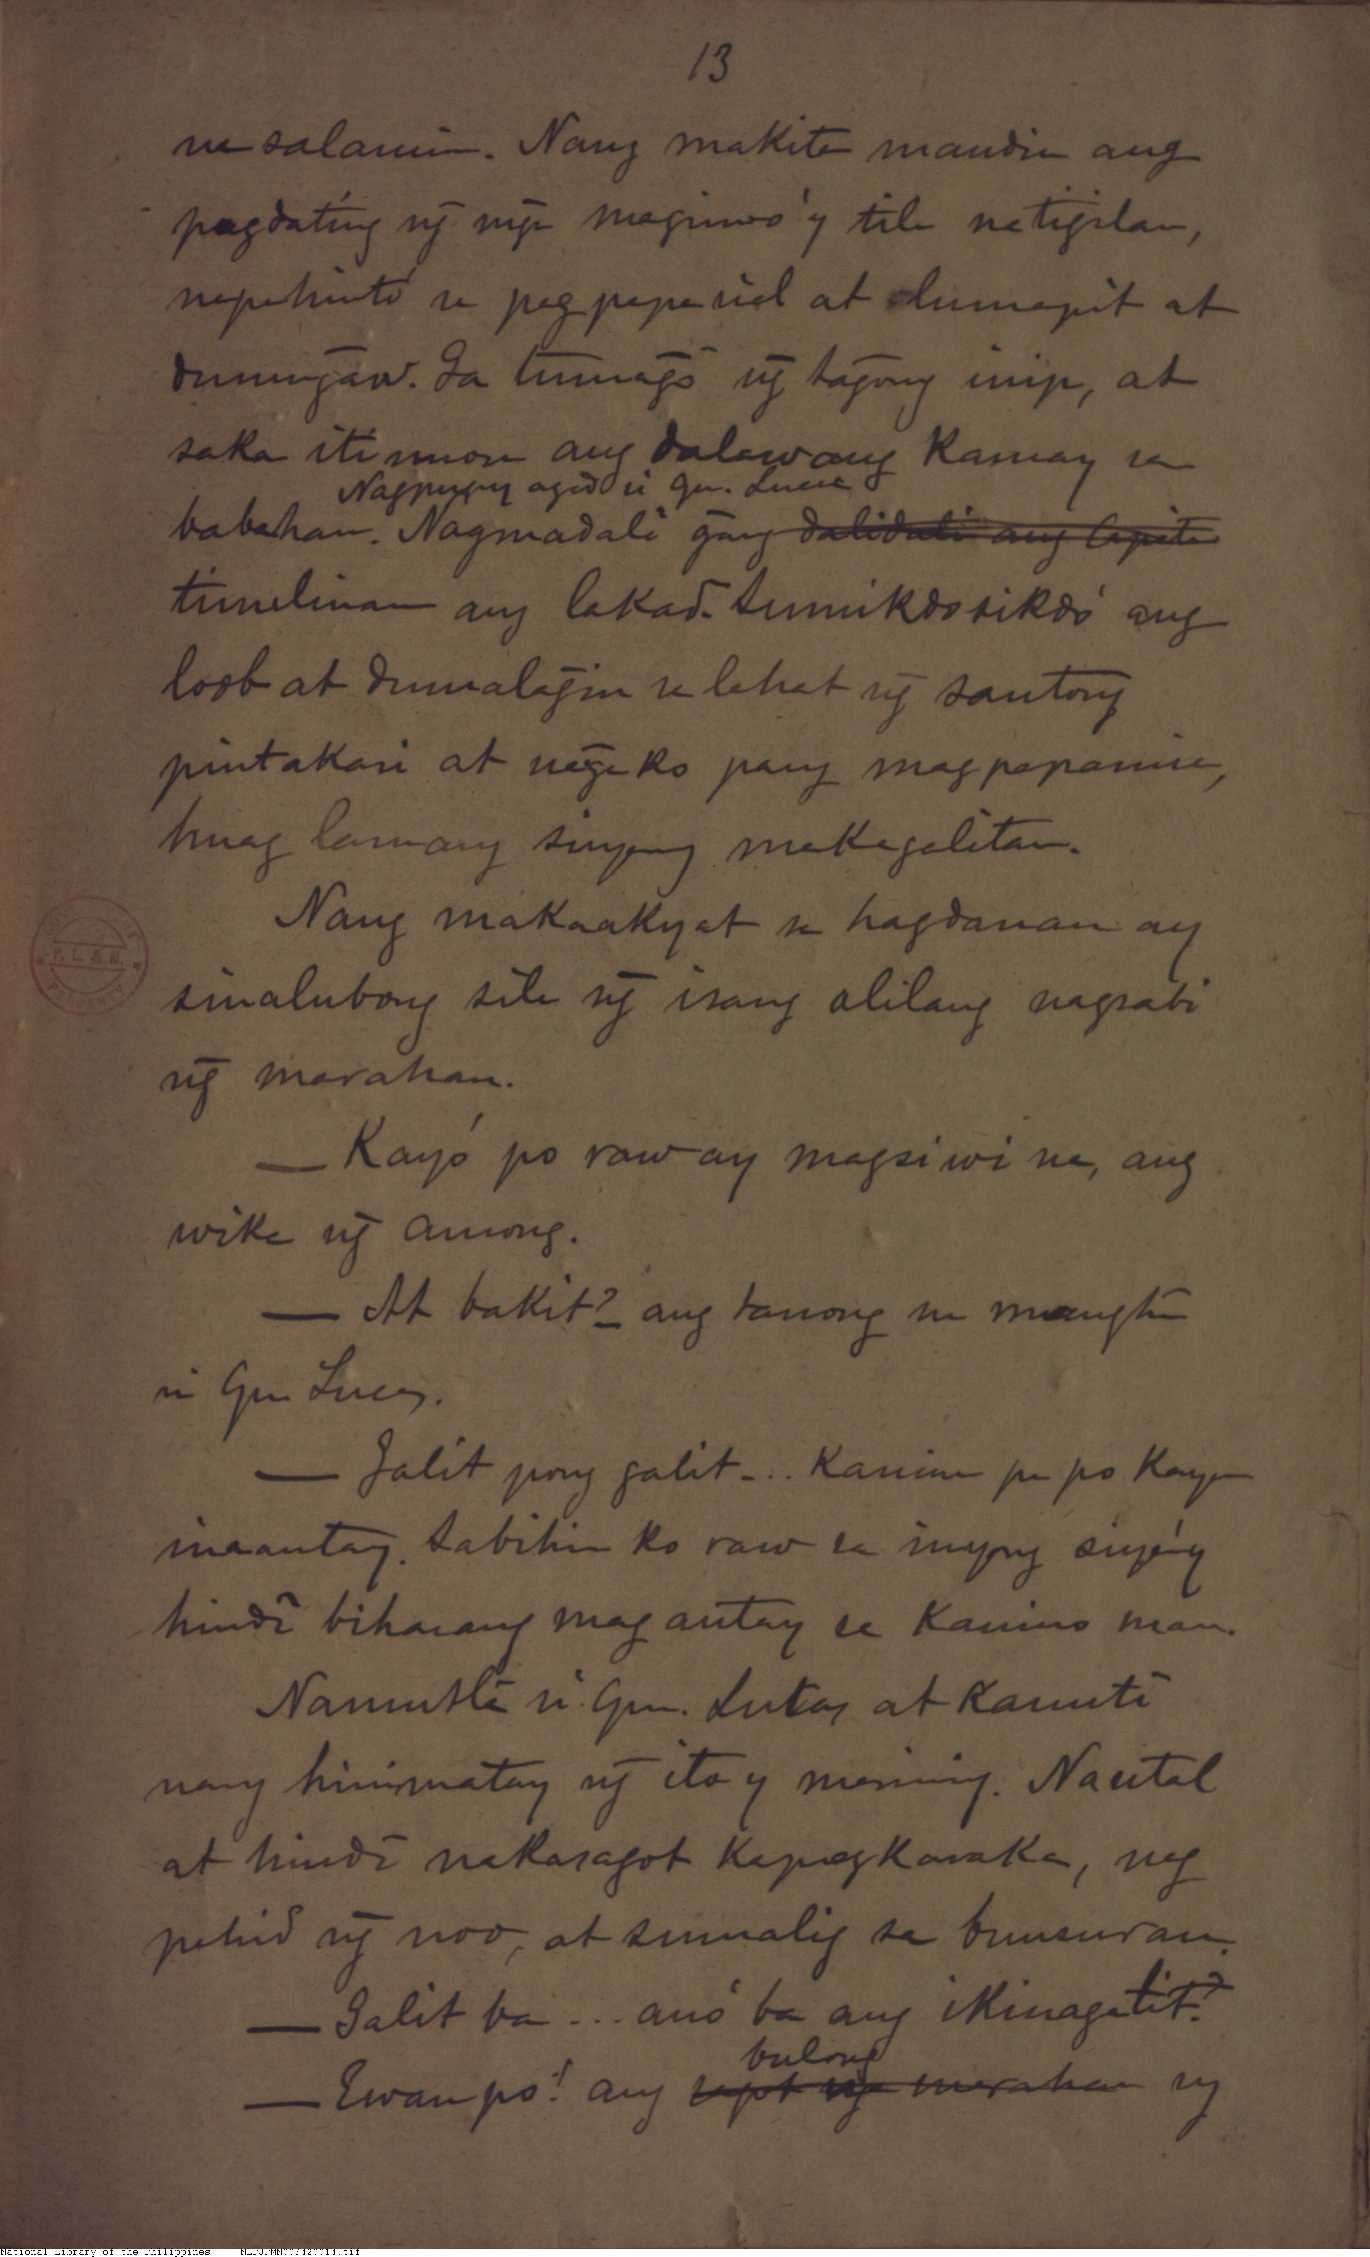 13
na salamin. Nang makita mandin ang
pagdating ng̃ mg̃a maginoo'y tila natigilan,
napahintô sa pagpapasial at lumapit at
dumung̃aw. Sa tumang̃ô ng̃ tang̃ong inip, at
saka itinuon ang dalawang kamay sa
Nagpugay agad si Gen. Lucas
babahan. Nagmadalî g̃ang dalidali ang Capitan
tinulinan ang lakad. Sumikdosikdó ang
loob at dumalang̃in sa lahat ng̃ santong
pintakasi at nang̃ako pang magpapamisa,
huag lamang siyang makagalitan.
Nang makaakyat sa hagdanan ay
sinalubong sila ng̃ isang alilang nagsabi
ng̃ marahan.
— Kayó po raw ay magsiwi na, ang
wika ng̃ among.
— At bakit? ang tanong na mangha
si Gen Lucas.
— Galit pong galit... Kanina pa po kayo
inaantay. Sabihin ko raw sa inyong siyá'y
hindî bihasang mag antay sa kanino man.
Namutlâ si Gen. Lukas at kauntî
nang hinimatay ng̃ ito'y mariníg. Nautal
at hindî nakasagot kapagkaraka, nag
pahid ng̃ noo, at sumalig sa bunsuran.
— Galit ba... anó ba ang ikinagalit?
bulong
— Ewan po! ang sagot ng̃a marahan ng